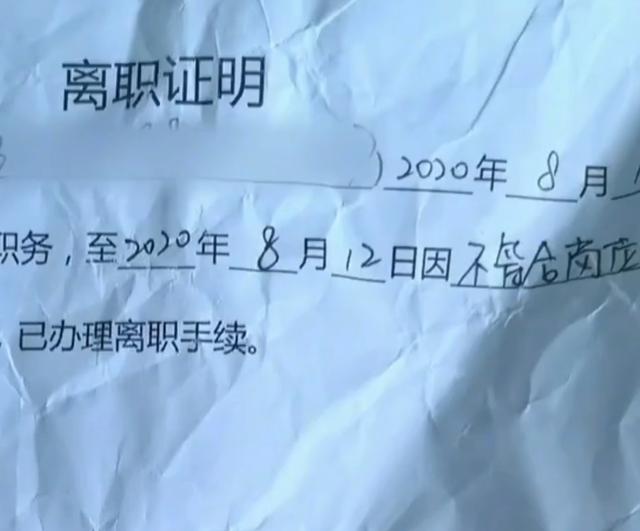 离职证明
）2020年 8月
职务，至2020年 8月12日因不符合岗位
，已办理离职手续。